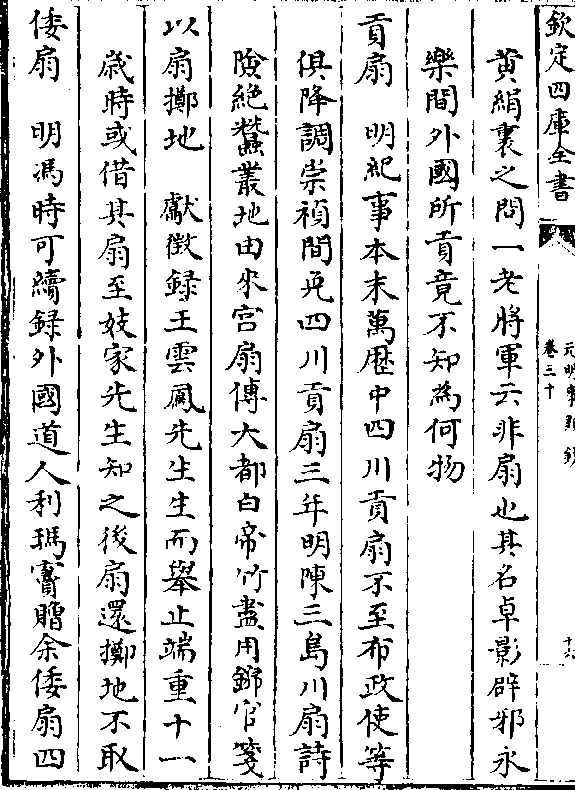 欽定四庫全書
元明事類鈔
卷三十
十六
黄絹裹之問一老將軍云非扇也其名卓影辟邪永
樂間外國所貢竟不知為何物
貢扇　明紀事本末萬厯中四川貢扇不至布政使等
俱降調崇禎間免四川貢扇三年明陳三島川扇詩
險絶蠶叢地由來宫扇傳大都白帝竹盡用錦官箋
以扇擲地　獻徴録王雲鳳先生生而舉止端重十一
歳時或借其扇至妓家先生知之後扇還擲地不取
倭扇　明馮時可續録外國道人利瑪竇贈余倭扇四